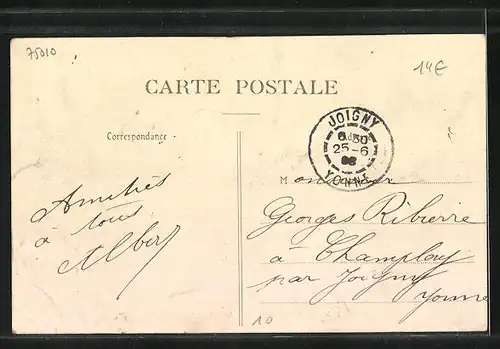 75010
14€
CARTE POSTALE
Correspondance
JOIGNY
6 30
25-6
08
YONNE
Monsieur
Amitiés
à tous
Albert
Georges Ribierre
a Champlay
par Joigny
Yonne
10